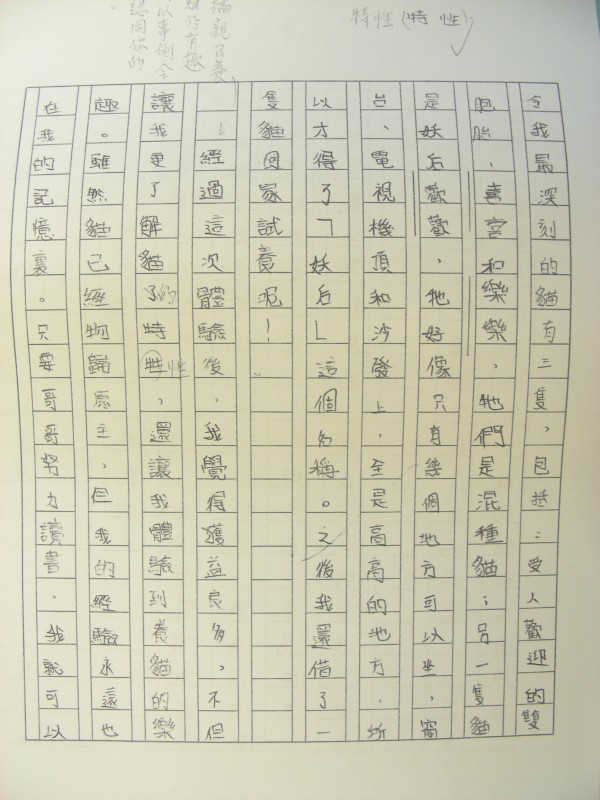 特性(特性)
令我最深刻的貓有三隻，包括：受人歡迎的雙
胞胎，喜喜和樂樂，牠們是混種貓；另一隻貓
是妖后歡歡，牠好像只有幾個地方可以坐，窗
台、電視機頂和沙發上，全是高高的地方，所
以才得了「妖后」這個名稱。之後我還借了一
隻貓回家試養呢！
經過這次體驗後，我覺得獲益良多。不但
讓我更了解貓了的特牲性，還讓我體驗到養貓的樂
趣。雖然貓已經物歸原主，但我的經驗永遠也
在我的記憶裏。只要哥哥努力讀書，我就可以
親自養
的有趣
以事例令
認同你的